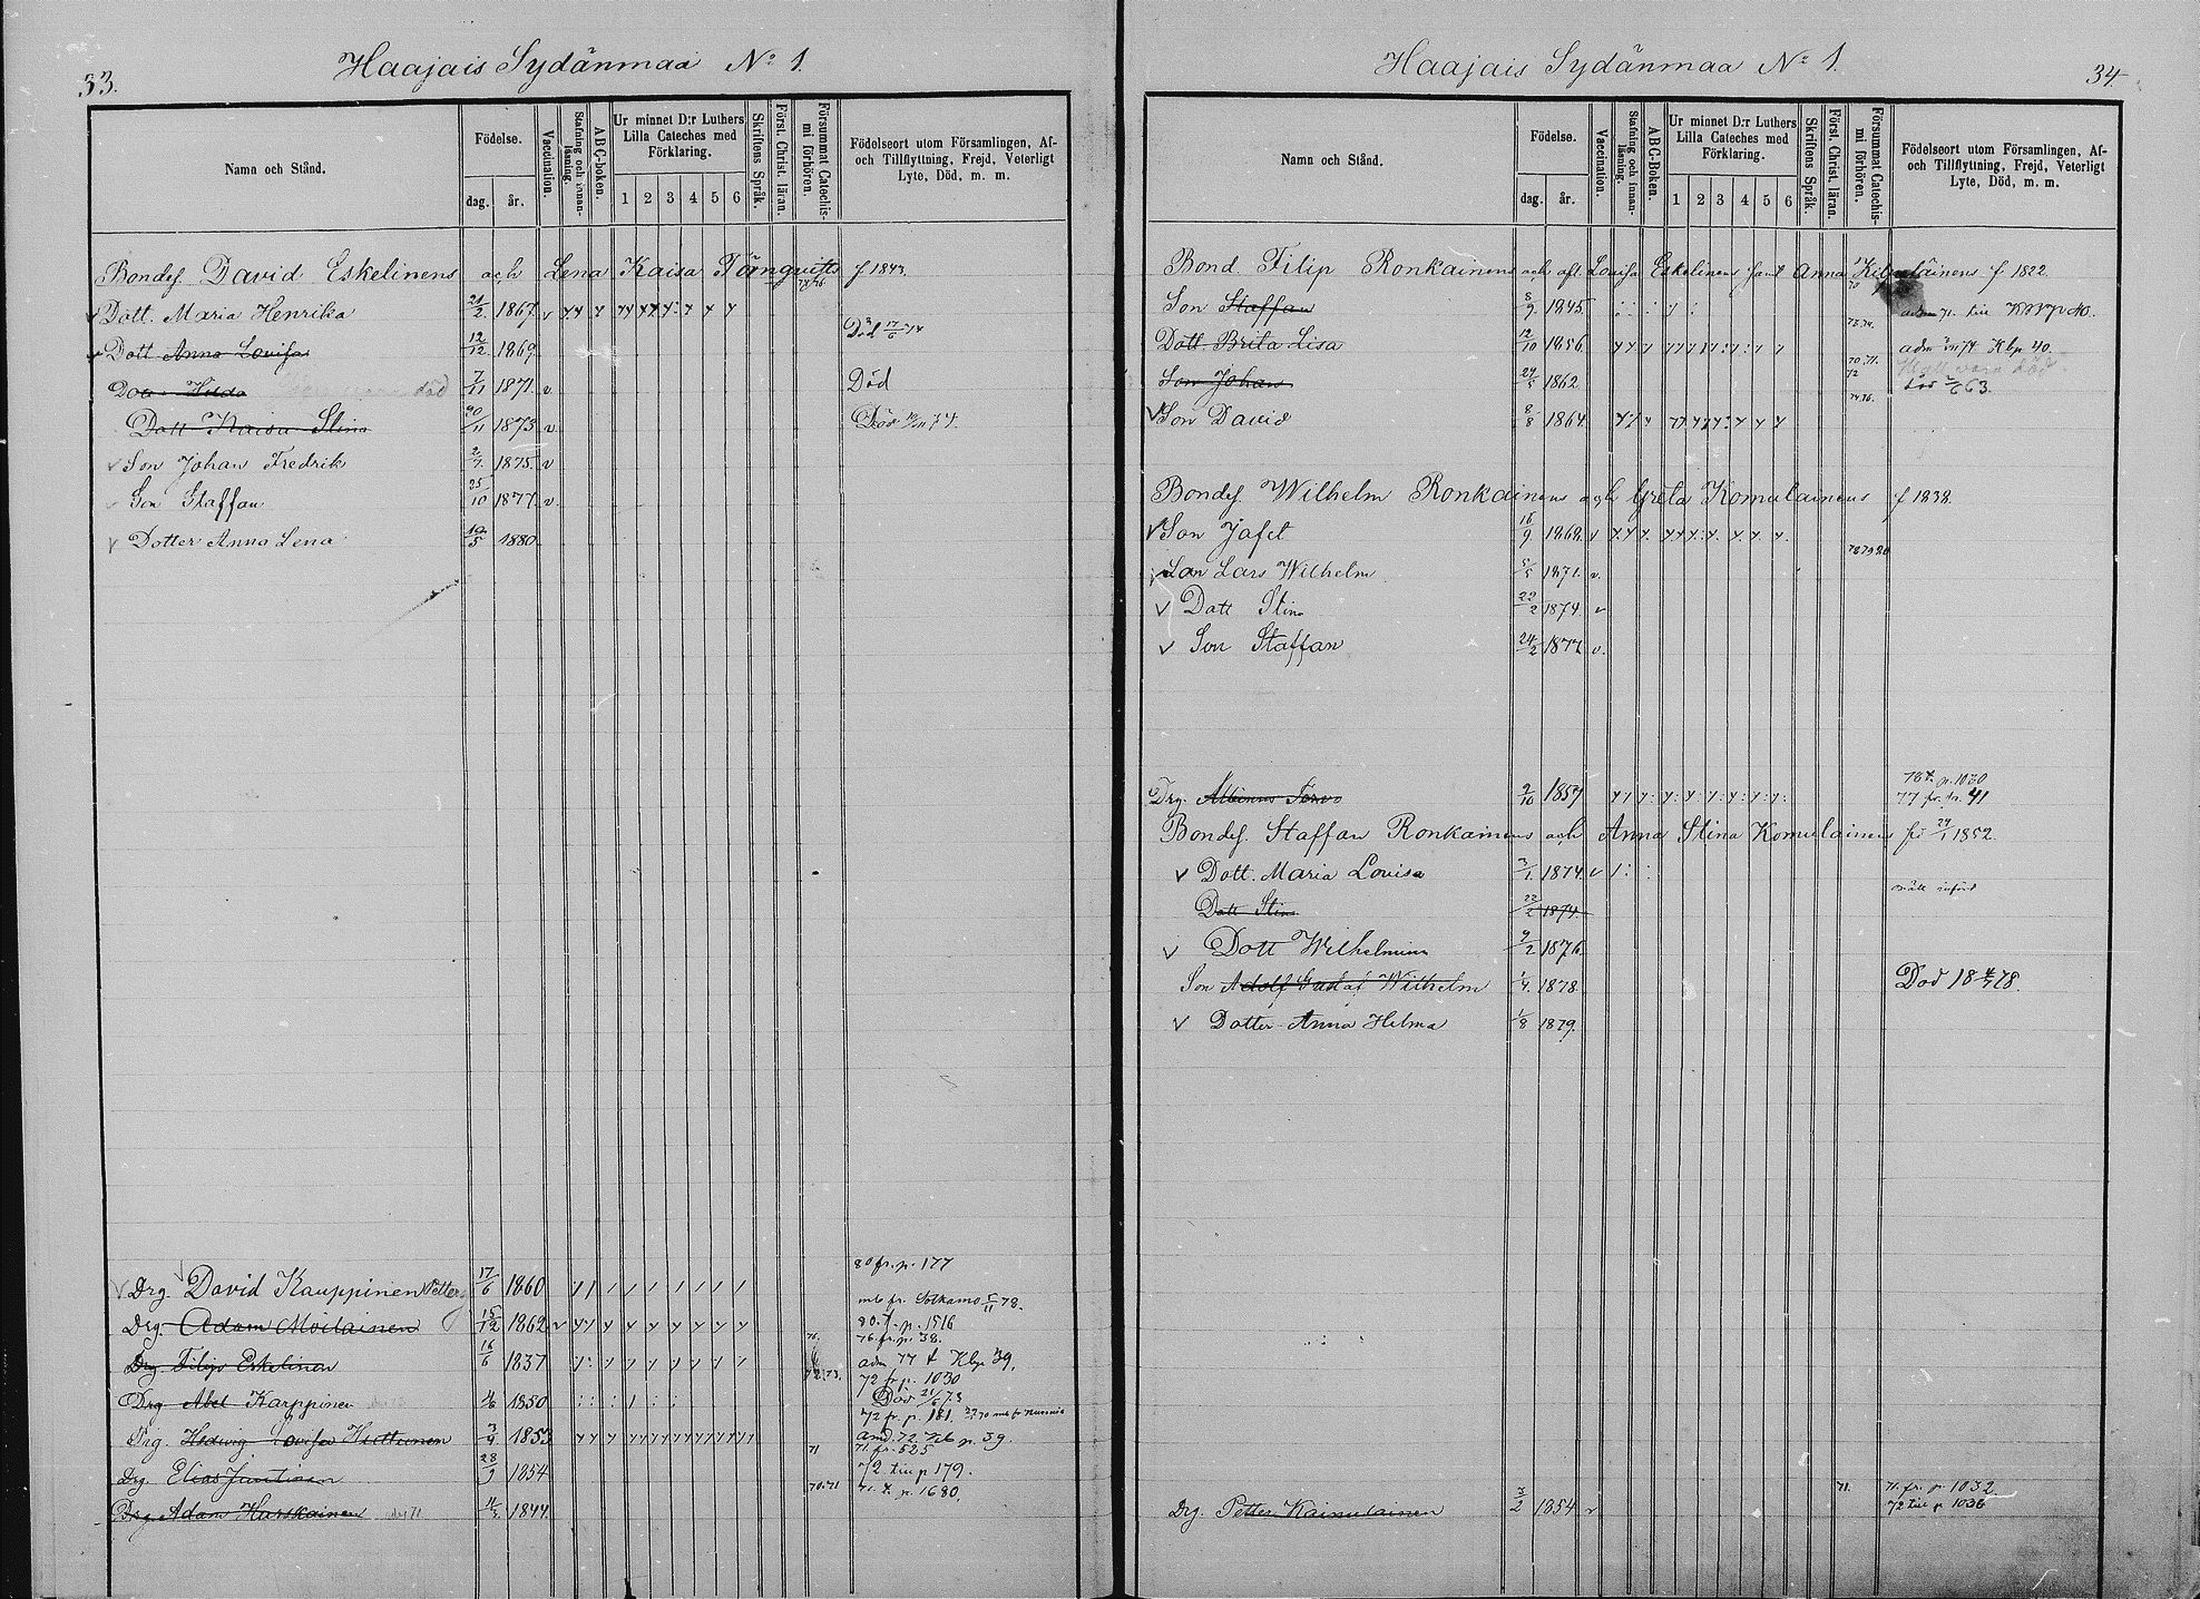 33.
Haajais Sydänmaa No 1.
Namn och Stånd.
Födelse.
dag.
år.
Vaccination.
Stafning och innan-läsning.
ABC-boken.
Ur minnet D:r Luthers
Lilla Cateches med
Förklaring.
1 2 3 4 5 6
Skriftens Språk.
Först. Christ. läran.
Försummat Catechis-mi förhören.
Födelseort utom Församlingen, Af-
och Tillflyttning, Frejd, Veterligt
Lyte, Död, m. m.
Bondes. David Eskelinens och Lena Kaisa Törnqvists f 1843.
Dott. Maria Henrika 21/2 1867. v
Dott Anna Lovisa 12/12 1869. Död 17/6 74
Hilda död 7/11 1871. v. Död
Dott Kaisa Stina /11 1873 v. Död 74.
Son Johan Fredrik 2/7. 1875. v
Son Staffan 25/10 1877. v.
Dotter Anna Lena 19/5 1880.
80 fr. p. 177
Drg. David Kauppinen Petter 17/6 1860
mb fr. Sotkamo 5/11 78.
Drg. Adam Moilainen 15/12 1862 v 80. t. p. 1516
76. fr. p. 38.
Drg. Filip Eskelinen 16/6 1837 adm 77 t Klp 39.
72 fr p. 1030
Drg Abel Karppinen 4/6 1850 Död 21/6 73
72 fr. p. 181.
Prg. Hedvig Lovisa Huttunen 3/9 1853 72. p. 39.
71. fr. 525
Drg. Elias Juntinen 28/9 1854 72 till p 179.
71. t. p. 1680.
Drg. Adam Hurskainen 1844.
34
Haajais Sydänmaa No 1.
Namn och Stånd.
Födelse.
dag.
år.
Vaccination.
Stafning och innan-läsning.
ABC-Boken.
Ur minnet D:r Luthers
Lilla Cateches med
Förklaring.
1 2 3 4 5 6
Skriftens Språk.
Först. Christ. läran.
Försummat Catechis-mi förhören.
Födelseort utom Församlingen, Af-
och Tillflyttning, Frejd, Veterligt
Lyte, Död, m. m.
Bond. Filip Ronkainens och afl. Lovisa Eskelinens samt Anna f 1822.
Son Staffan 8/9. 1845. 71. till
Dott. Brita Lisa 12/10 1856. adm 74 Klp 40.
Son Johan 1862. död 63.
Son David 8/8 1864.
Bondes. Wilhelm Ronkainens och Greta Komulainens f 1838.
Son Jafet 16/9 1868. v
Son Lars Wilhelm 5/5 1871. v.
Dott Stina 22/2 1874. v
Son Staffan 24/2 1877. v.
78 t. p. 1030
Drg. 2/10 1857 77 fr. 41
Bondes. Staffan Ronkainens och Anna Stina Komulainens 29/1 1852.
Dott. Maria Lovisa 3/1. 1874. v
Dott Stina 22/2 1874.
Dott Wilhelmina 9/2 1876.
Son Adolf Gustaf Wilhelm 1/4. 1878. Död 18 78.
Dotter Anna Helma 1/8 1879.
71. 71. fr. p. 1032.
Drg. Petter Kainulainen 3/2 1854 v 72 till p 1036